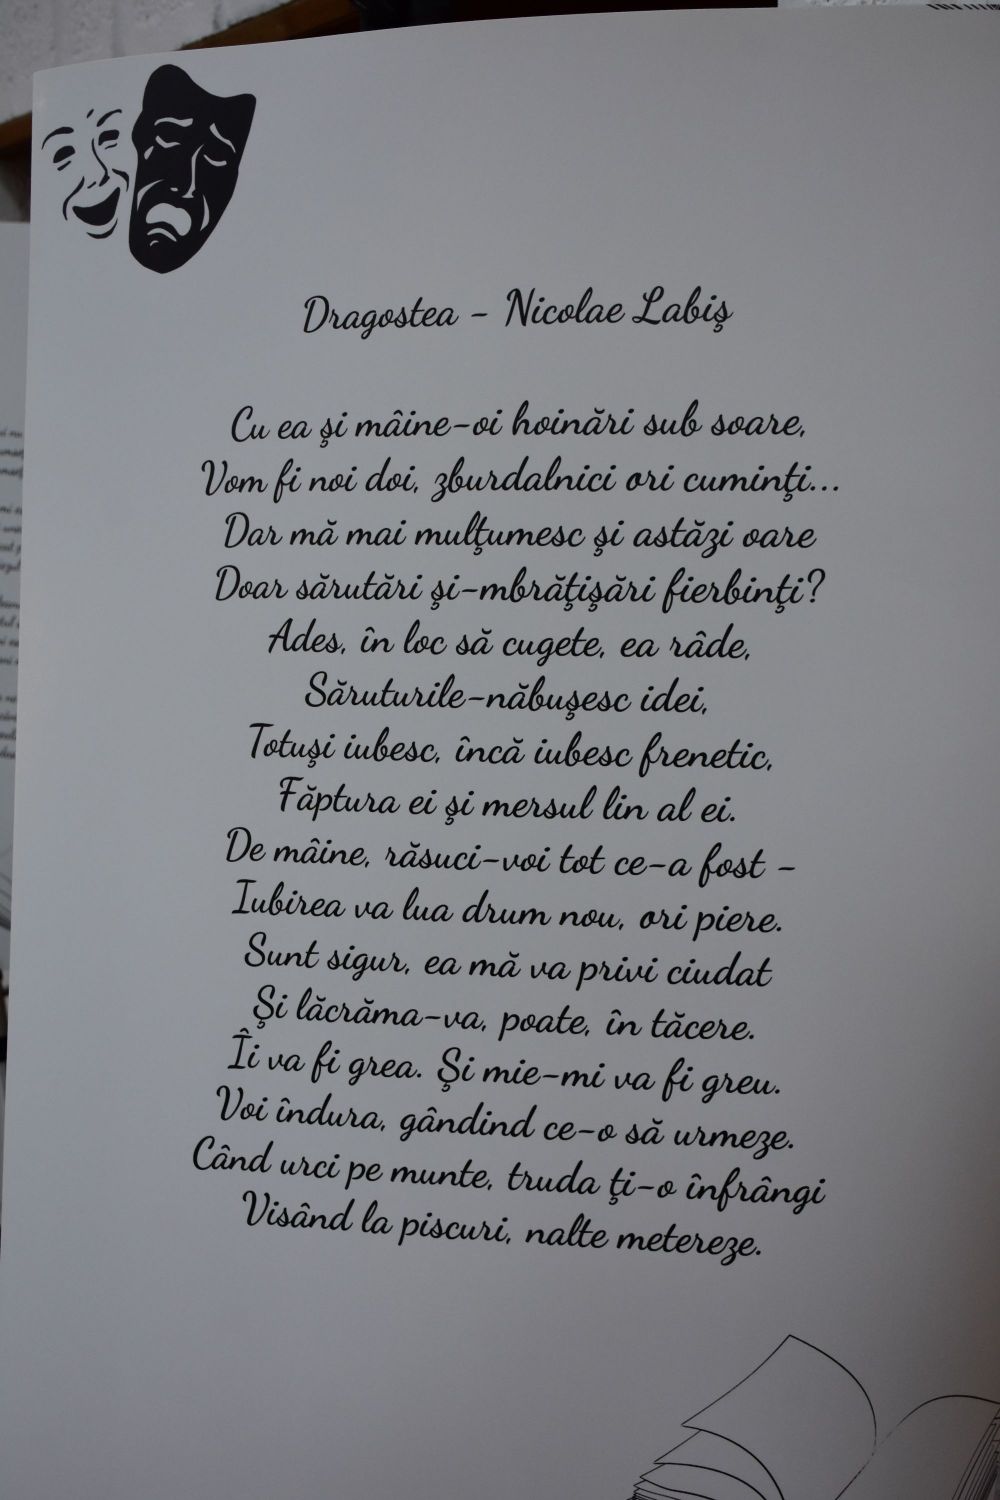 Dragostea - Nicolae Labiş
Cu ea şi mâine-oi hoinări sub soare,
Vom fi noi doi, zburdalnici ori cuminţi...
Dar mă mai mulţumesc şi astăzi oare
Doar sărutări şi-mbrăţişări fierbinţi?
Ades, în loc să cugete, ea râde,
Săruturile-năbuşesc idei,
Totuşi iubesc, încă iubesc frenetic,
Făptura ei şi mersul lin al ei.
De mâine, răsuci-voi tot ce-a fost -
Iubirea va lua drum nou, ori piere.
Sunt sigur, ea mă va privi ciudat
Şi lăcrăma-va, poate, în tăcere.
Îi va fi grea. Şi mie-mi va fi greu.
Voi îndura, gândind ce-o să urmeze.
Când urci pe munte, truda ţi-o înfrângi
Visând la piscuri, nalte metereze.